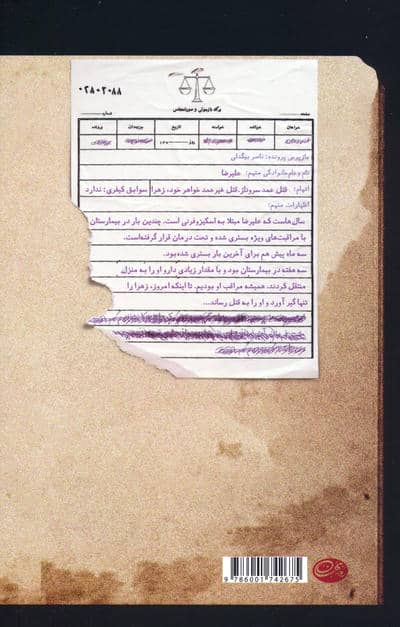 ۰۲۸۰۲۰۸۸
برگه بازجوئی و صورتمجلس
صفحه
شماره
خواهان
خوانده
خواسته
تاریخ
مرجع‌رسیدگی
پرونده
بازپرس پرونده: ناصر بیگدلی
نام و نام‌خانوادگی متهم: علیرضا
اتهام: قتل عمد سروناز، قتل غیرعمد خواهر خود، زهرا
سوابق کیفری: ندارد
اظهارات متهم:
سال‌هاست که علیرضا مبتلا به اسکیزوفرنی است. چندین بار در بیمارستان
با مراقبت‌های ویژه بستری شده و تحت درمان قرار گرفته‌است.
سه ماه پیش هم برای آخرین بار بستری شده‌بود.
سه هفته در بیمارستان بود و با مقدار زیادی دارو او را به منزل
منتقل کردند. همیشه مراقب او بودیم. تا اینکه امروز، زهرا را
تنها گیر آورد و او را به قتل رساند...
9 786001 742675